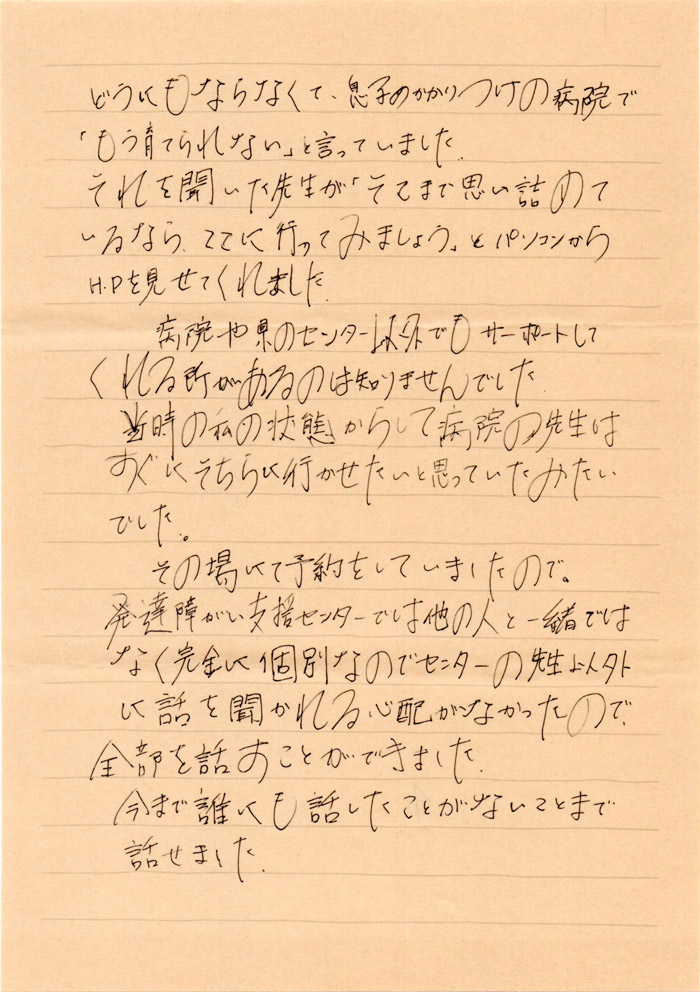 どうにもならなくて、息子のかかりつけの病院で
「もう育てられない」と言っていました.
それを聞いた先生が「そこまで思い詰めて
いるなら、ここに行ってみましょう」とパソコンから
H.Pを見せてくれました.
病院や県のセンター以外でもサーポートして
くれる所があるのは知りませんでした.
当時の私の状態からして病院の先生は
すぐにそちらに行かせたいと思っていたみたい
でした。
その場にて予約をしていましたので。
発達障がい支援センターでは他の人と一緒では
なく完全に個別なのでセンターの先生以外
に話を聞かれる心配がなかったので、
全部を話すことができました.
今まで誰にも話したことがないことまで
話せました.